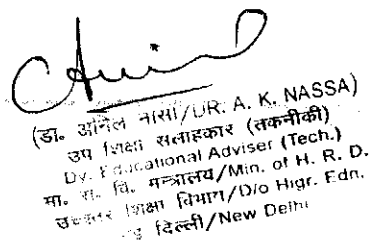 (डा. अनिल नासा/DR. A. K. NASSA)
उप शिक्षा सलाहकार (तकनीकी)
Dy. Educational Adviser (Tech.)
मा. सं. वि. मन्त्रालय/Min. of H. R. D.
उच्चतर शिक्षा विभाग/D/o Higr. Edn.
दिल्ली/New Delhi